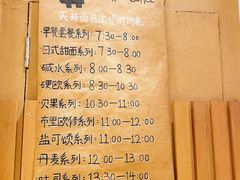 天井面包出炉时间表
早餐套餐系列: 7:30-8:00
日式甜面系列: 7:30-8:00
碱水系列: 8:00-8:30
硬欧系列: 8:00-9:30
贝果系列: 10:30-11:00
布里欧修系列: 11:00-12:00
盐可颂系列: 11:00-12:00
丹麦系列: 12:00-13:00
吐司系列: 13:30-14:00